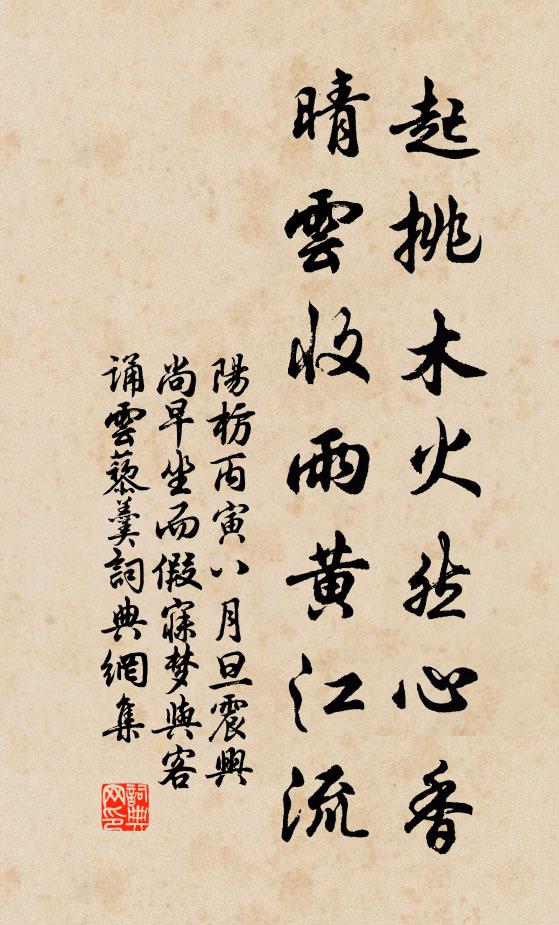 起挑木火然心香
晴雲收雨黄江流
陽枋丙寅八月旦震興
尚早坐而假寐梦與客
诵雲藜羹詞典網集
詞典网印